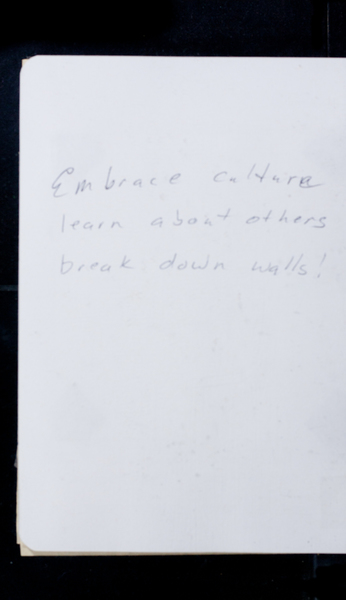 Embrace culture
learn about others
break down walls!